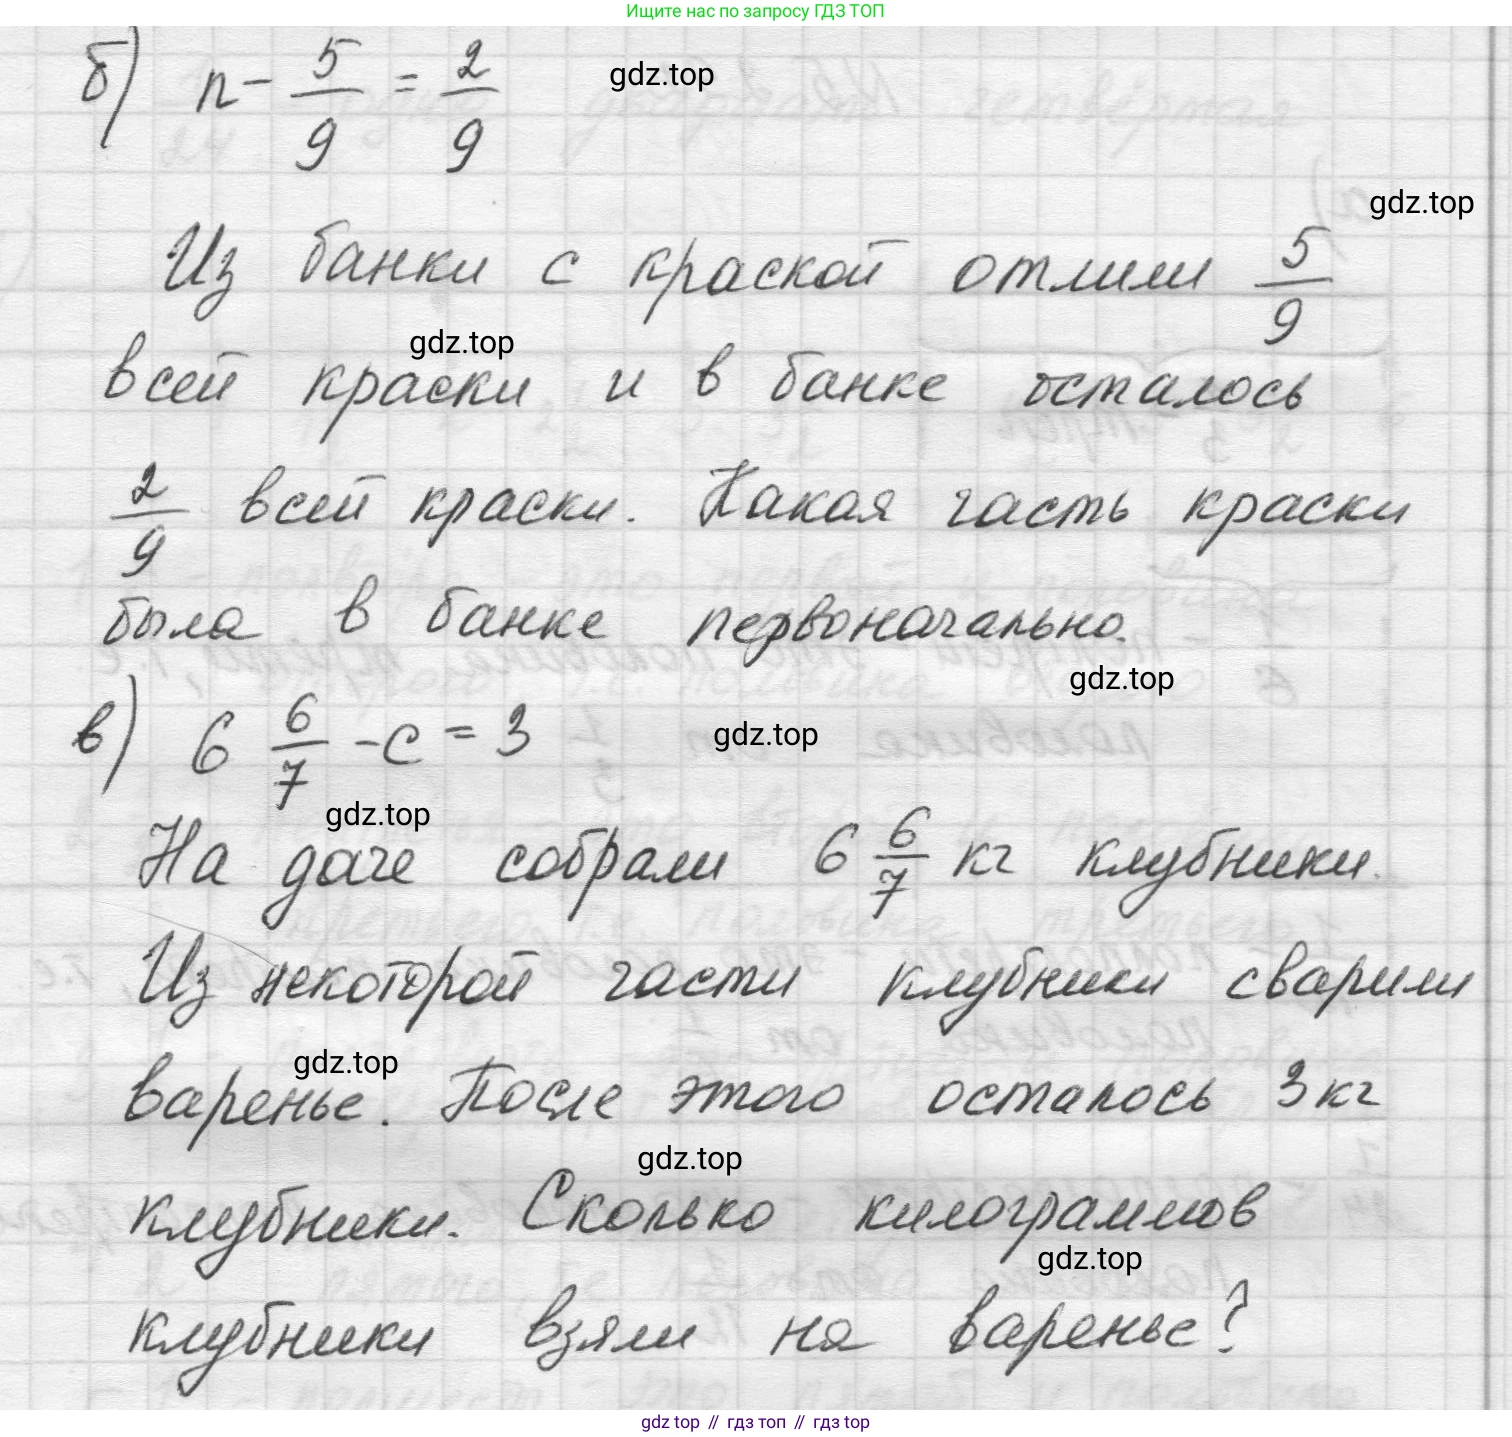 Ищите нас по запросу ГДЗ ТОП
б) n - 5/9 = 2/9
gdz.top
gdz.top
Из банки с краской отлили 5/9
gdz.top
всей краски и в банке осталось
2/9 всей краски. Какая часть краски
была в банке первоначально.
gdz.top
в) 6 6/7 - c = 3
gdz.top
gdz.top
На даче собрали 6 6/7 кг клубники.
Из некоторой части клубники сварили
gdz.top
варенье. После этого осталось 3 кг
gdz.top
клубники. Сколько килограммов
gdz.top
клубники взяли на варенье?
gdz top // гдз топ // гдз top